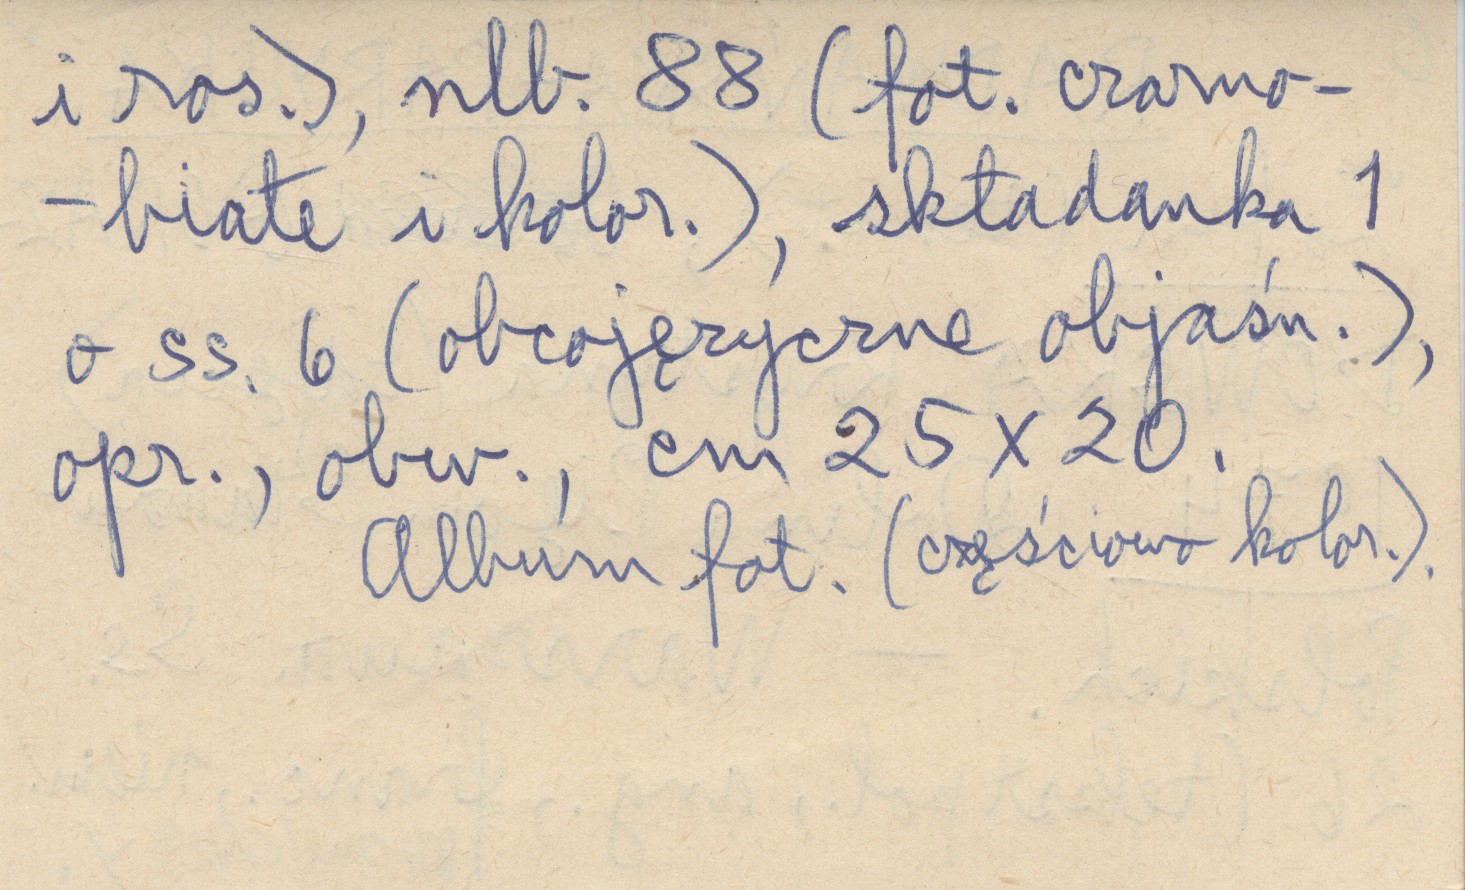 i ros.), nlb. 88 (fot. czarno-
-białe i kolor.), składanka 1
o ss. 6 (obcojęzyczne objaśn.),
opr., obw., cm 25x20.
Album fot. (częściowo kolor.).